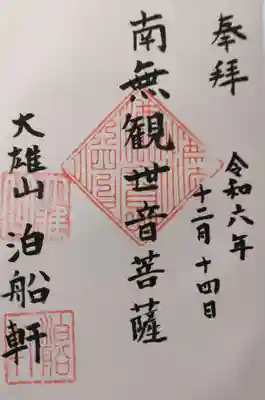 奉拝
令和六年
十二月十四日
南無観世音菩薩
大雄山 泊船軒